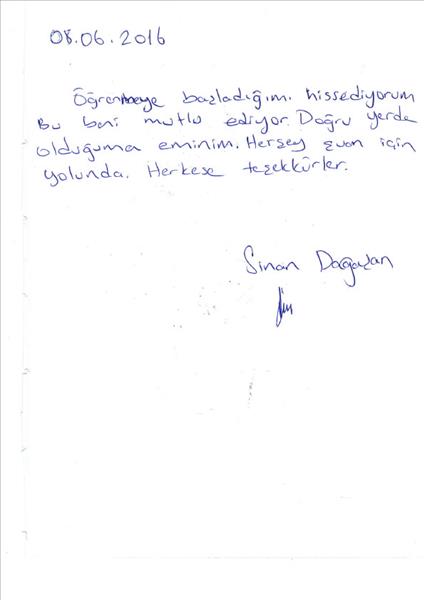 08.06.2016
Öğrenmeye başladığımı hissediyorum
Bu beni mutlu ediyor. Doğru yerde
olduğuma eminim. Herşey şuan için
yolunda. Herkese teşekkürler.
Sinan